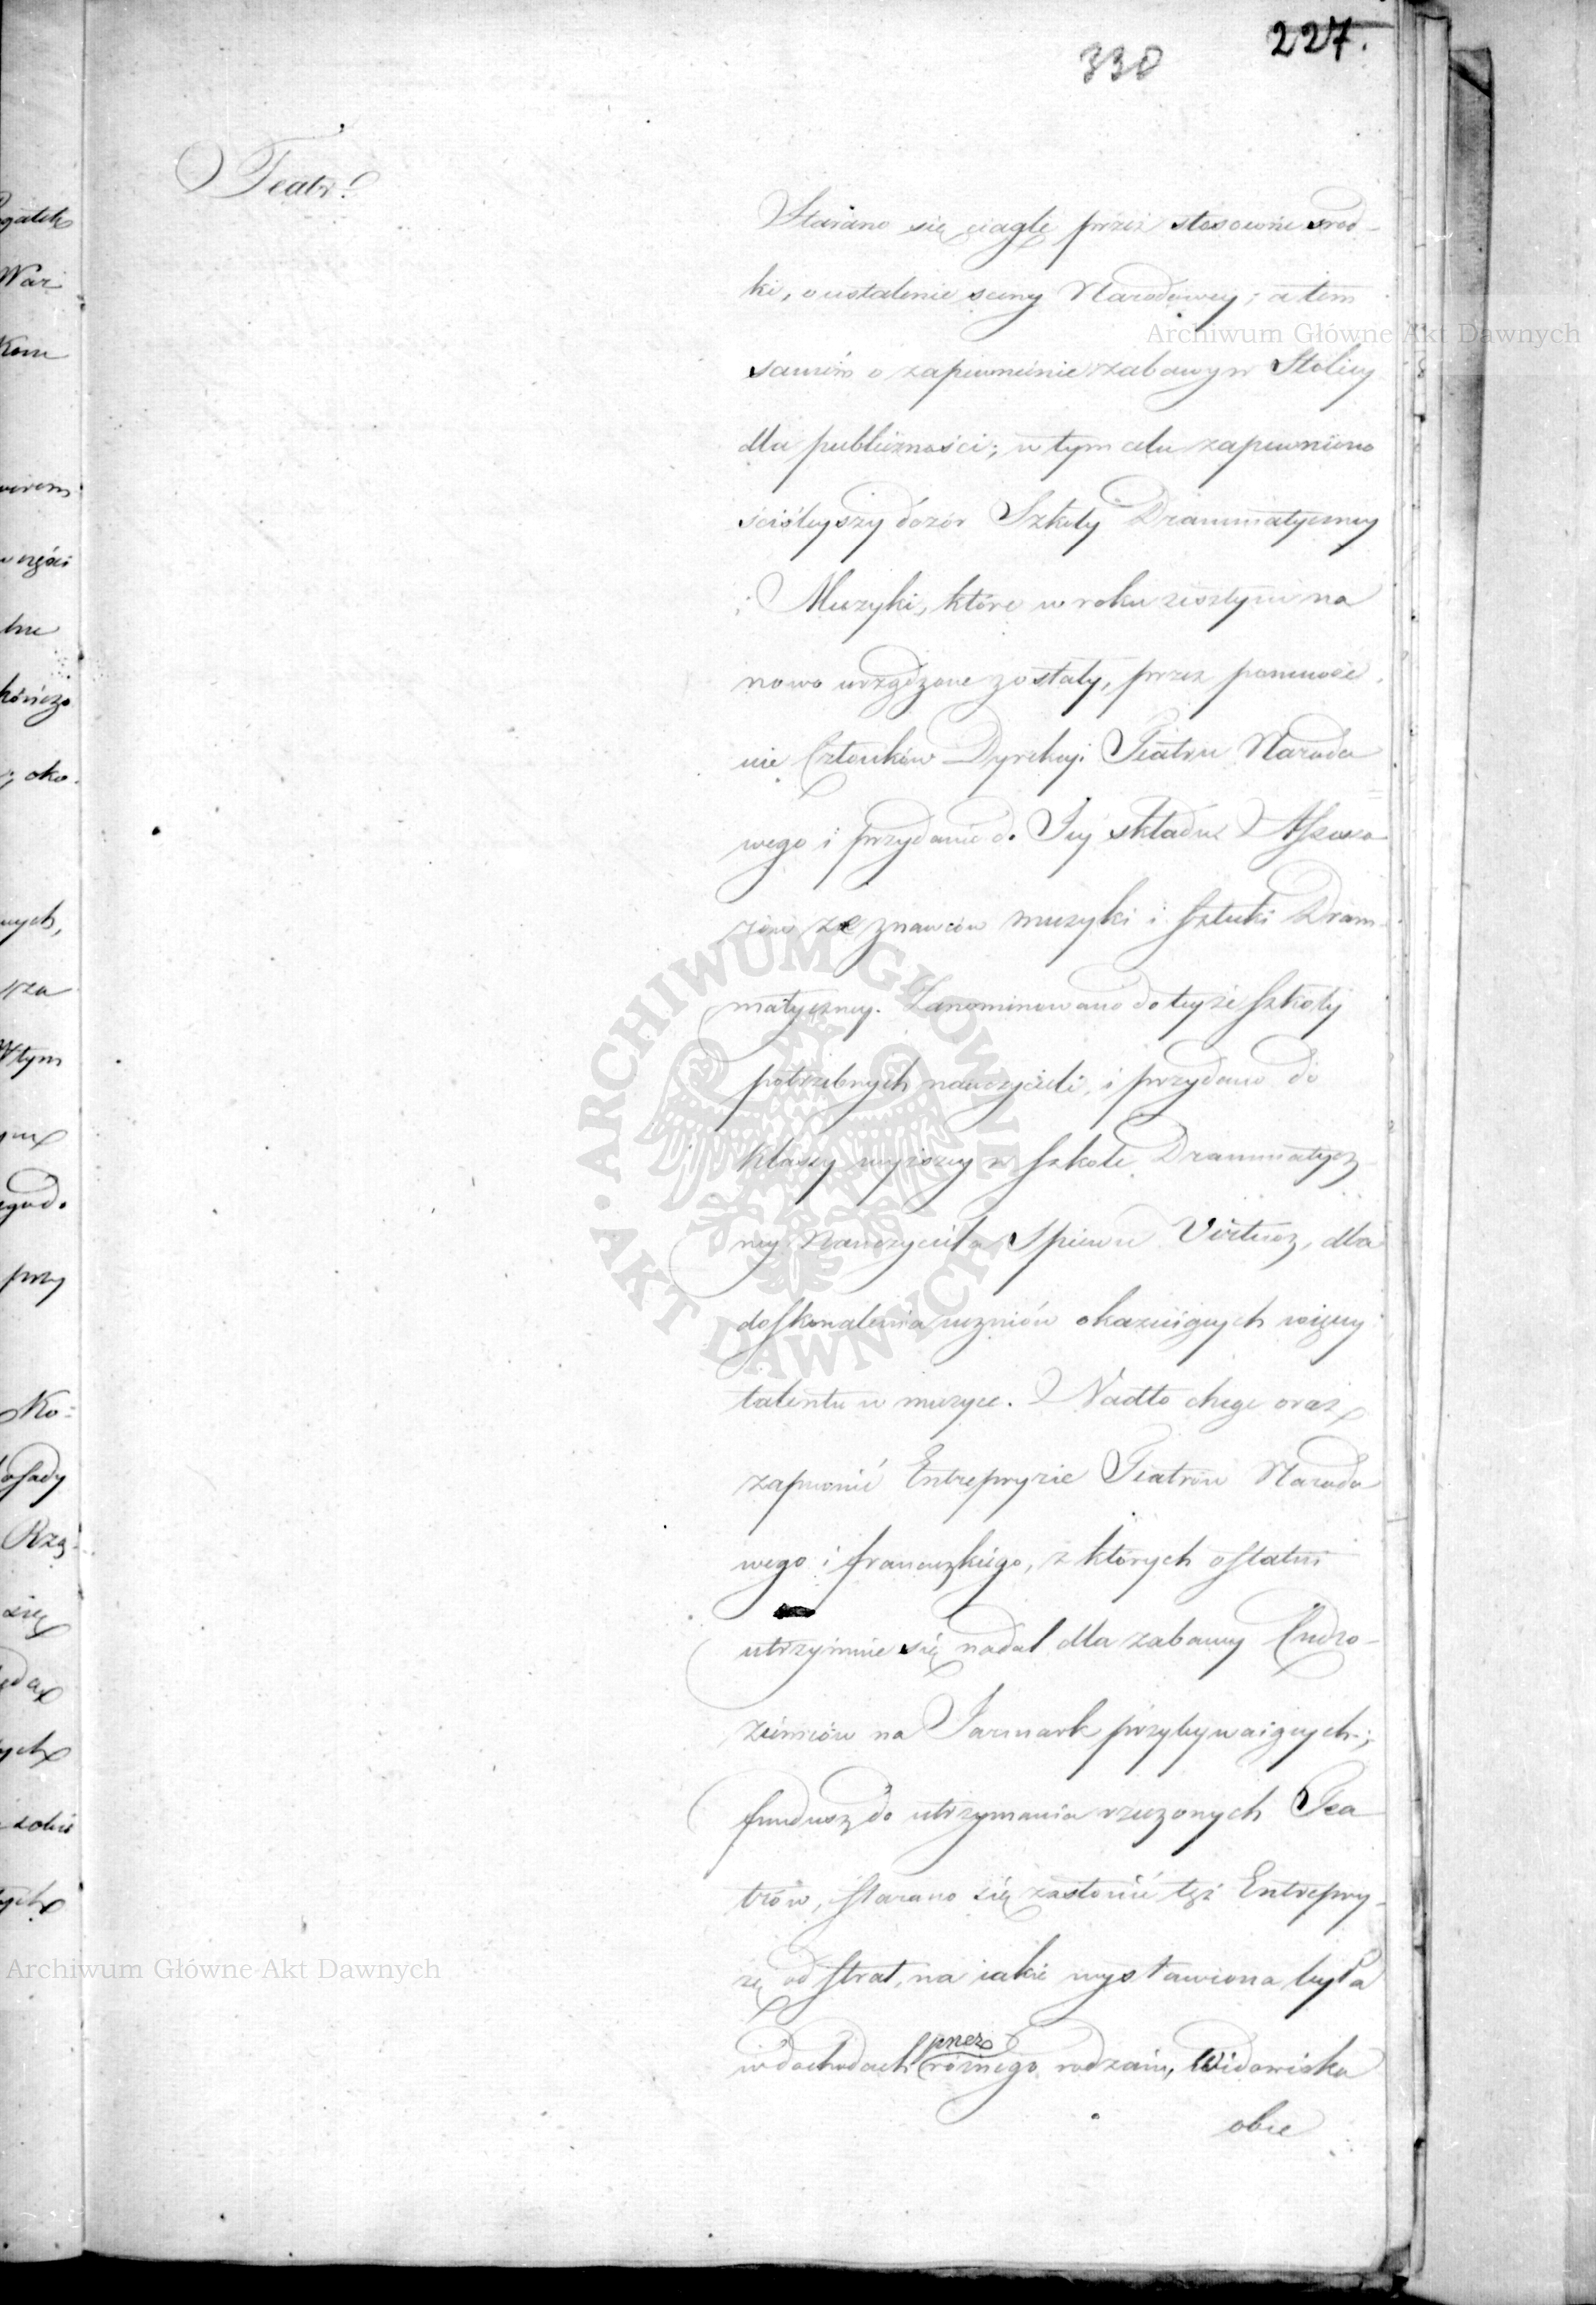 330
227.
Teatr.
Starano się ciągle przez stosowne środ-
ki, o ustalenie sceny Narodowey; a tem
samém o zapewnienie zabawy w Stolicy
dla publiczności; w tym celu zapewniono
ściśleyszy dozór Szkoły Drammatyczney
i Muzyki, które w roku zeszłym na
nowo urządzone zostały, przez pomnoże
nie Członków Dyrekcyi Teatru Narodo
wego i przydanie do Jey składu Assesso
rów ze znawców muzyki i sztuki Dram-
matyczney. Zanominowano do teyże szkoły
potrzebnych nauczycieli, i przydano do
klassy wyższey w szkole Drammatycz-
ney Nauczyciela Spiewu Virtuoz, dla
doskonalenia uczniów okazuiących więcey
talentu w muzyce. Nadto chcąc oraz
zapewnić Entrepryzie Teatrów Narodo
wego i francuzkiego, z których ostatni
utrzymuie się nadal dla zabawy Cudzo-
ziemców na Jarmark przybywaiących;
fundusz do utrzymania rzeczonych Tea
trów, starano się zasłonić też Entrepry-
zę od strat, na iakie wystawiona była
w dochodach przez różnego rodzaiu, Widowiska
obce
Archiwum Główne Akt Dawnych
Archiwum Główne Akt Dawnych
ARCHIWUM GŁÓWNE AKT DAWNYCH